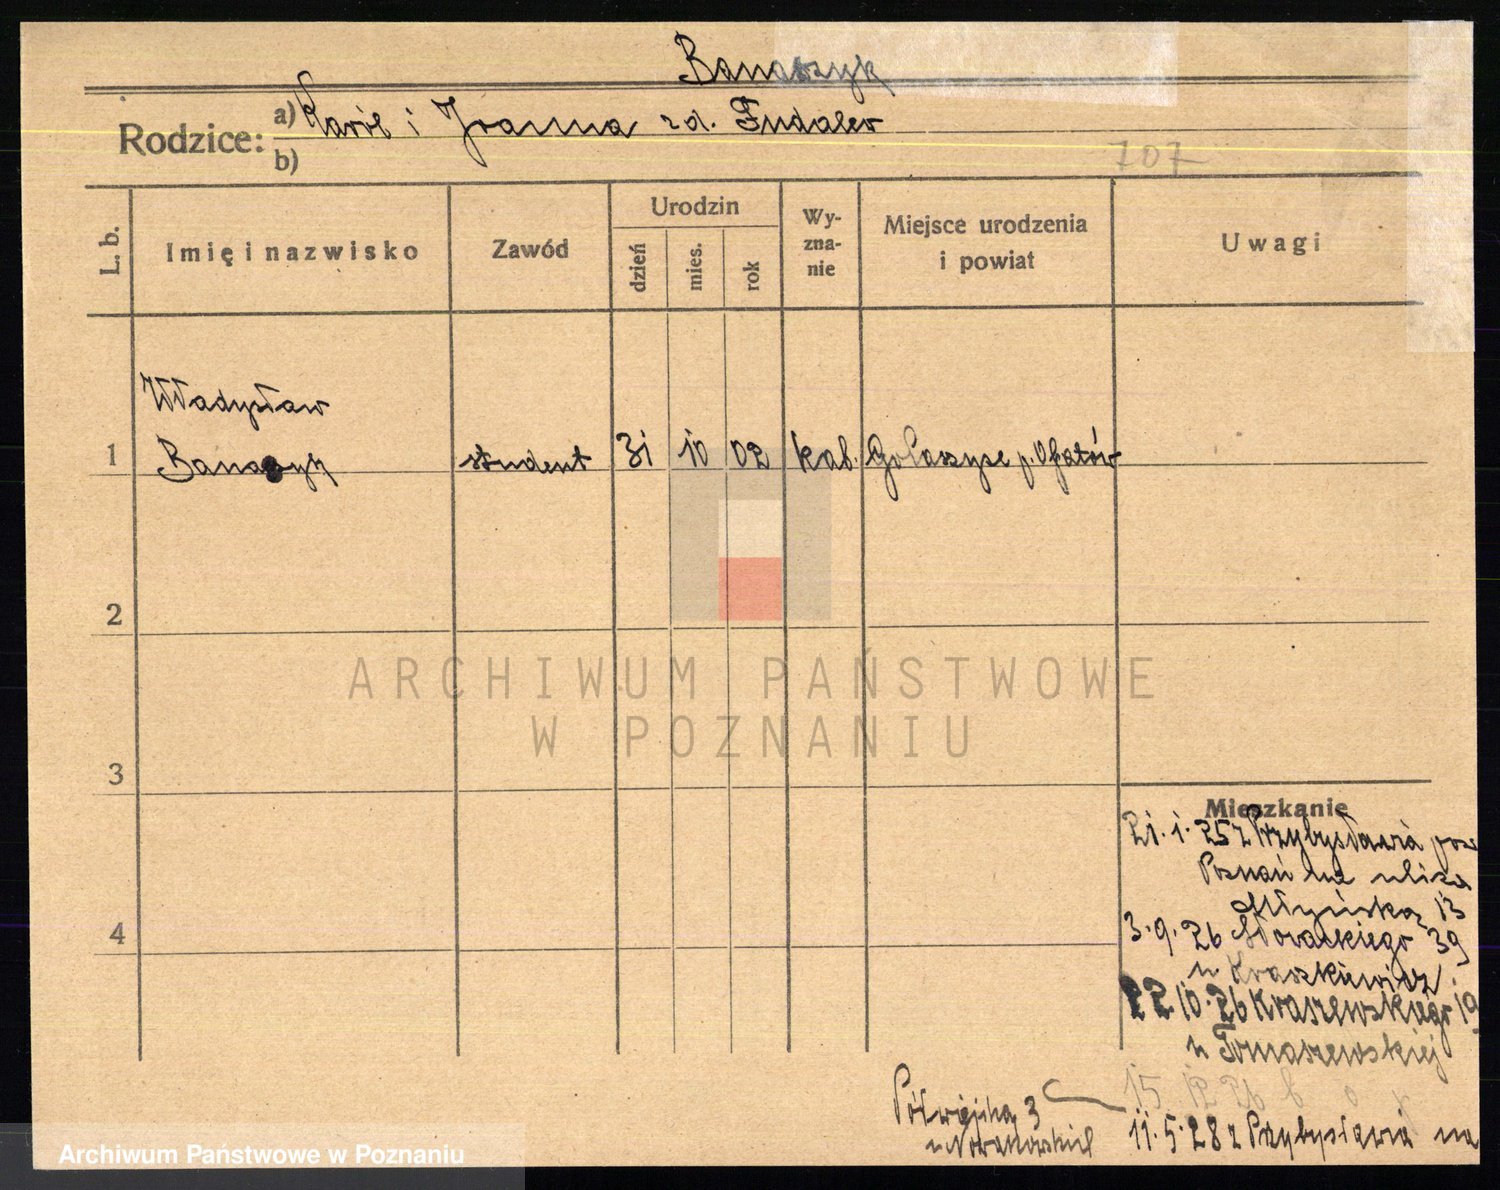 Banaszyk
Rodzice: a) Karol i Joanna zd. Fudalew
b)
707
L. b.
Imię i nazwisko
Zawód
Urodzin
dzień
mies.
rok
Wy-
zna-
nie
Miejsce urodzenia
i powiat
Uwagi
Władysław
1 Banaszyk student 31 10 02 kat. p. Opatów
2
ARCHIWUM PAŃSTWOWE
W POZNANIU
3
4
Mieszkanie
21. 1. 25 z Przybysławia pow
Poznań na ulica
Młyńska 13
3. 9. 26 Słowackiego 39
u Kraszkiewicz
22 10. 26 Kraszewskiego 19
u Tomaszewskiej
15 12 26
Półwiejska 3
u Nowakowskiej
11. 5. 28 z Przybysławia na
Archiwum Państwowe w Poznaniu